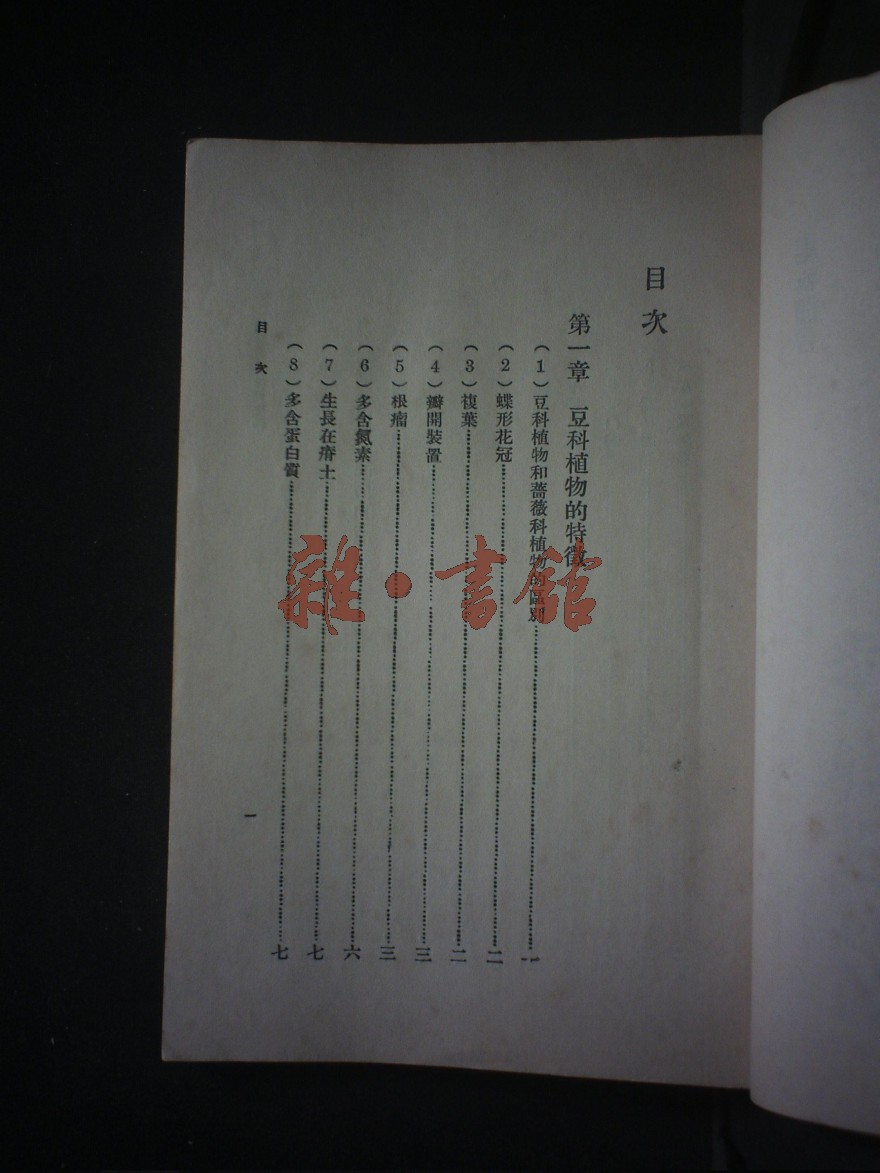 目次
第一章 豆科植物的特徵
(1)豆科植物和薔薇科植物的區別……一
(2)蝶形花冠……二
(3)複葉……二
(4)瓣開裝置……三
(5)根瘤……三
(6)多含氮素……六
(7)生長在瘠土……七
(8)多含蛋白質……七
目次
一
雜·書館